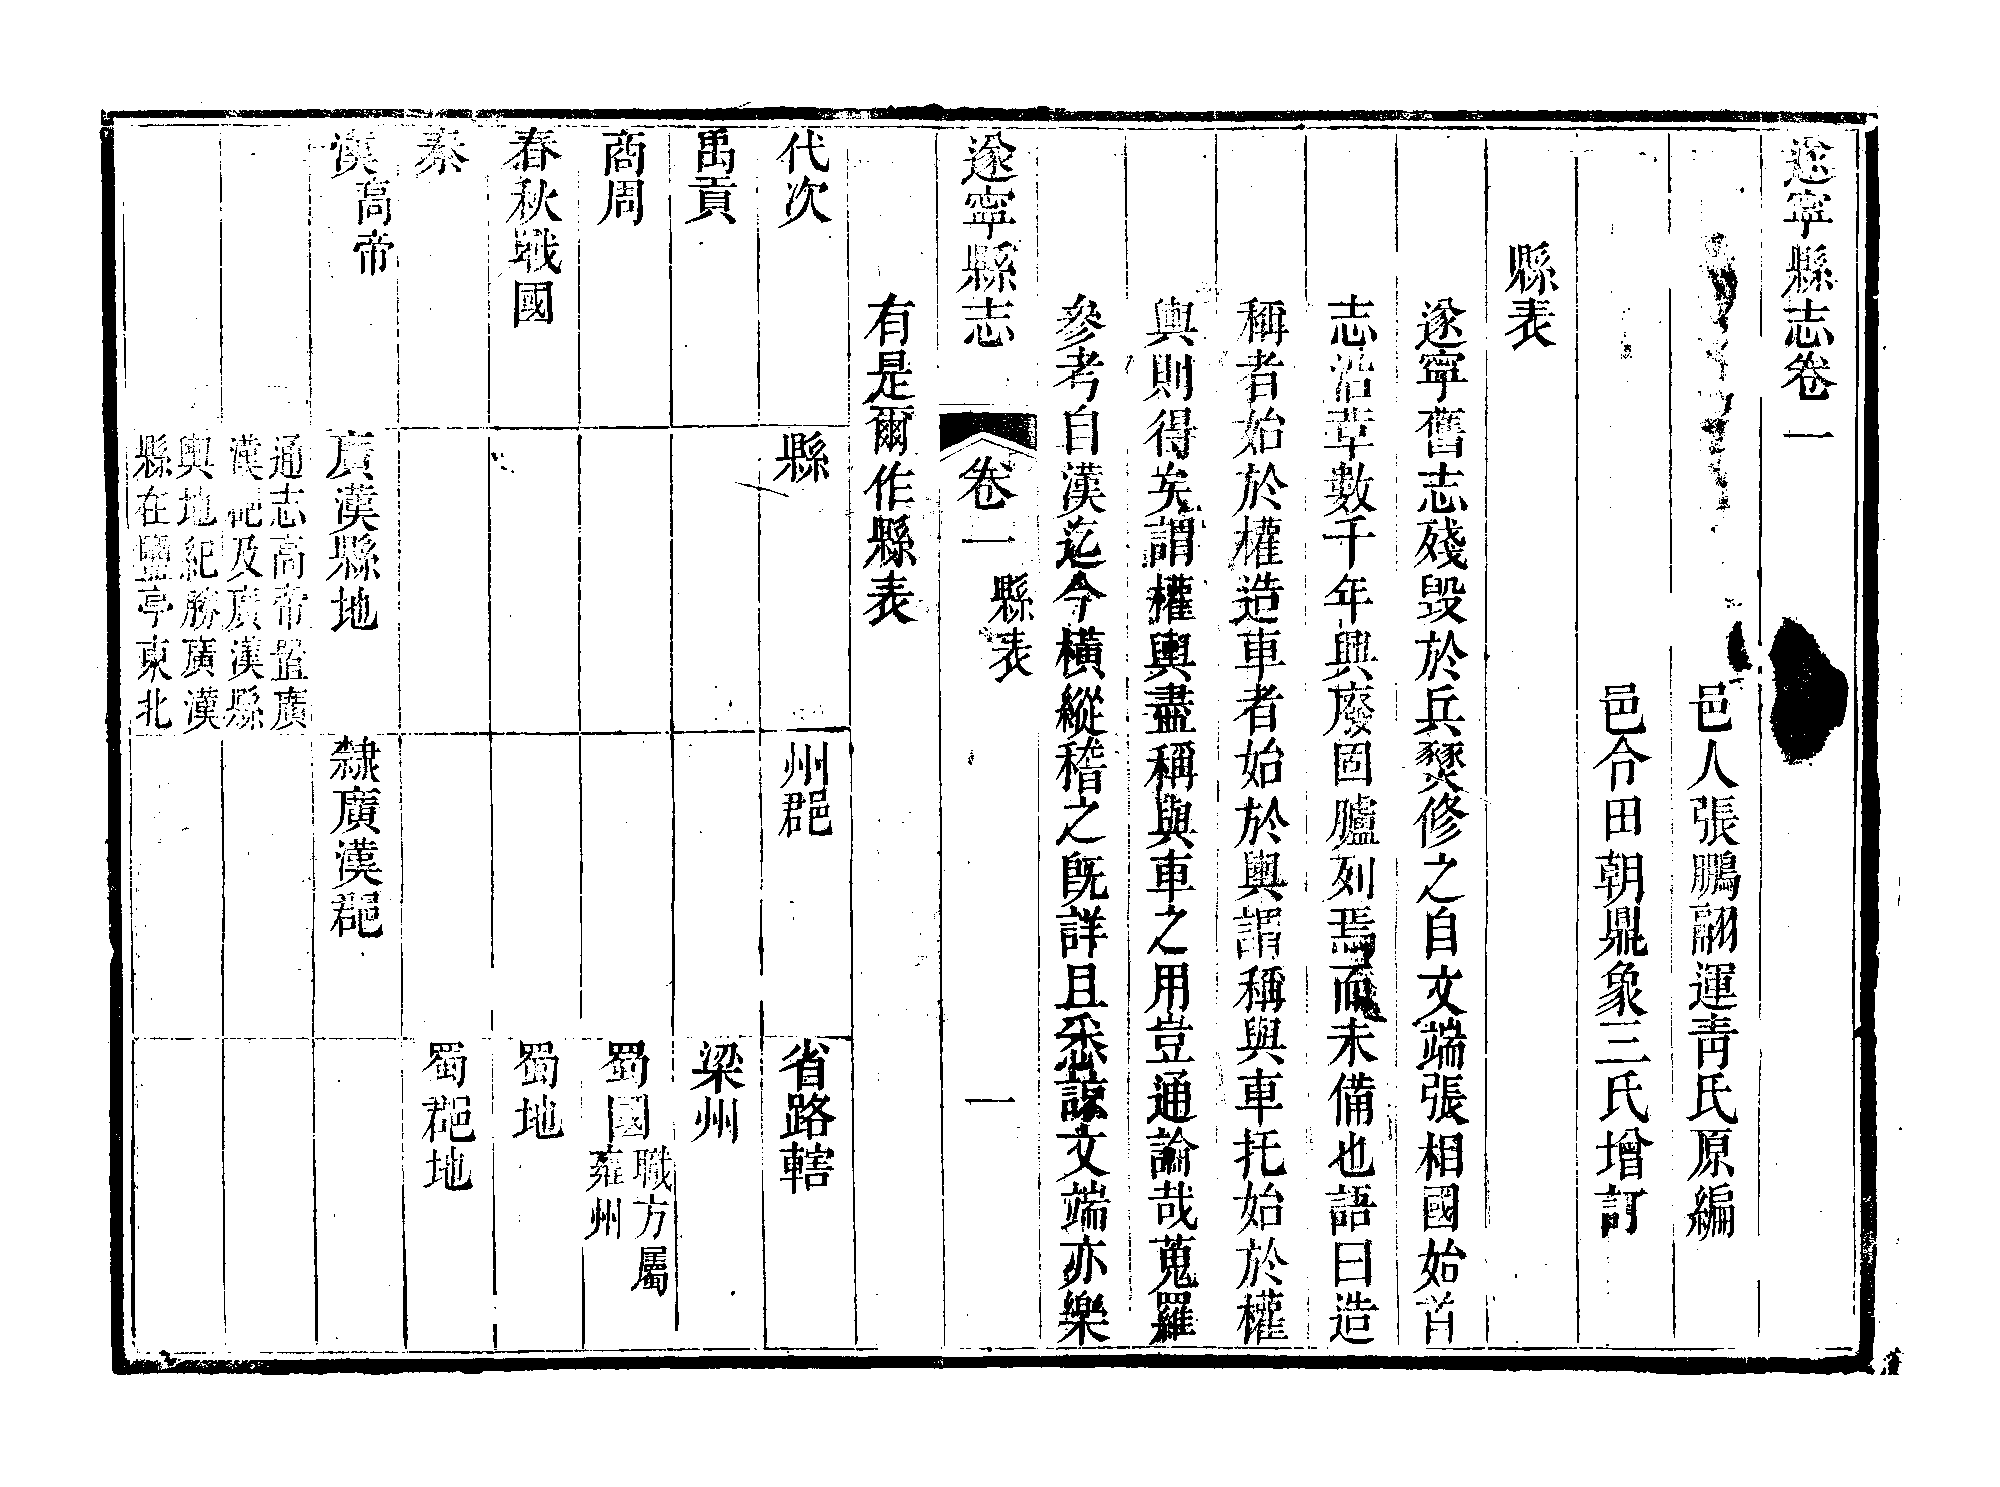 遂寧縣志卷一
邑人張鵬翮運青氏原編
邑令田朝鼎象三氏增訂
縣表
遂寧舊志殘毀於兵燹修之自文端張相國始首
志沿革數千年興廢固臚列焉而未備也語曰造
稱者始於權造車者始於輿謂稱與車托始於權
輿則得矣謂權輿盡稱與車之用豈通論哉蒐羅
參考自漢迄今橫縱稽之旣詳且悉諒文端亦樂
有是爾作縣表
遂寧縣志 卷一 縣表 一
代次 縣 州郡 省路轄
禹貢 梁州
商周 蜀國 職方屬
雍州
春秋戰國 蜀地
秦 蜀郡地
漢高帝 廣漢縣地 隸廣漢郡
通志高帝置廣
漢郡及廣漢縣
輿地紀勝廣漢
縣在鹽亭東北